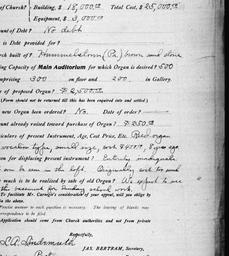 of Church? Building, $ 18,000.00 Total Cost, $ 25,000.00
Equipment, $ 3,000.00
ount of Debt? No debt
is Debt provided for?
rch built of? Hummelstown (Pa.) brown sandstone
ing Capacity of Main Auditorium for which Organ is desired? 500
mprising 300 on floor and 200 in Gallery.
of proposed Organ? $ 2,500.00
(Form should not be returned till this has been required into and settled.)
new Organ been ordered? No. Date of order?
ount already raised toward purchase of Organ? $ 250.00
iculars of present Instrument, Age, Cost Price, Etc. Reed organ
size, cost $ years ago
son for displacing present instrument? Entirely inadequate
can be seen in the loft. Originally
much is to be realized by sale of old Organ? We expect to use
the basement for Sunday school work.
To facilitate Mr. Carnegie's consideration of your appeal, will you oblige by
in the above.
Precise answer to each question is necessary. The leaving of blanks may
correspondence to be filed.
Application should come from Church authorities and not from private
Respectfully,
JAS. BERTRAM, Secretary,